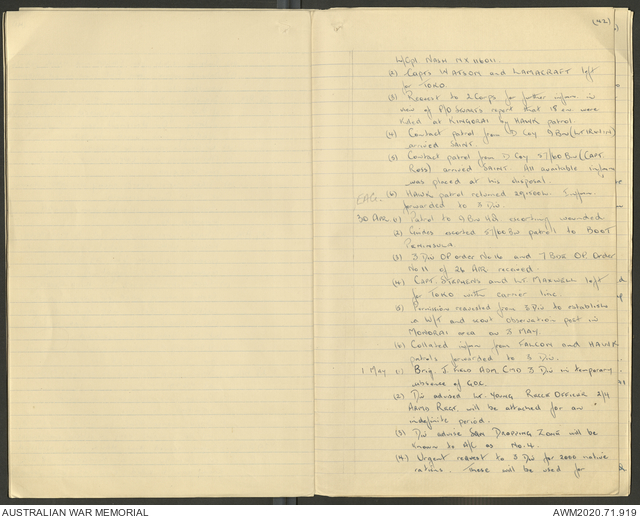 (42)
L/Cpl NASH MX116011.
(2) Capts WATSON and LAMACRAFT left
for TOKO
(3) Request to 2 Corps for further inform in
view of report that 18 en were
killed at by HAWK patrol
(4) Contact patrol from D Coy 9 Bn (Lt IRWIN)
arrived SAINT.
(5) Contact patrol from D Coy 57/60 Bn (Capt.
Ross) arrived SAINT. All available inform
was placed at his disposal.
(6) HAWK patrol returned 291500K. Inform
forwarded to 3 Div.
30 APR (1) Patrol to 9 Bn HQ escorting wounded
(2) Guides escorted 57/60 Bn patrol to BOOT
PENINSULA
(3) 3 Div OP order No and 7 Bde OP Order
No 11 of 26 APR received.
(4) Capt. STEPHENS and Lt. MAXWELL left
for TOKO with carrier line.
(5) Permission requested from 3 Div to establish
a W/T and scout observation post in
area on 3 MAY
(6) Collated inform from FALCON and HAWK
patrols forwarded to 3 Div.
1 May (1) Brig. J. FIELD ADM CMD 3 Div in temporary
absence of GOC.
(2) Div advised Lt. YOUNG OFFICER 2/4
ARMD REGT. will be attached for an
indefinite period.
(3) Div advise DROPPING ZONE will be
known to A/C as No. 4.
(4) Urgent request to 3 Div for 2000 native
rations. These will be used for
AUSTRALIAN WAR MEMORIAL
AWM2020.71.919